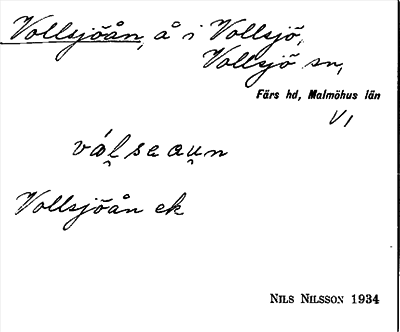 Vollsjöån, å i Vollsjö,
Vollsjö sn,
Färs hd, Malmöhus län
VI
Vollsjöån ek
NILS NILSSON 1934